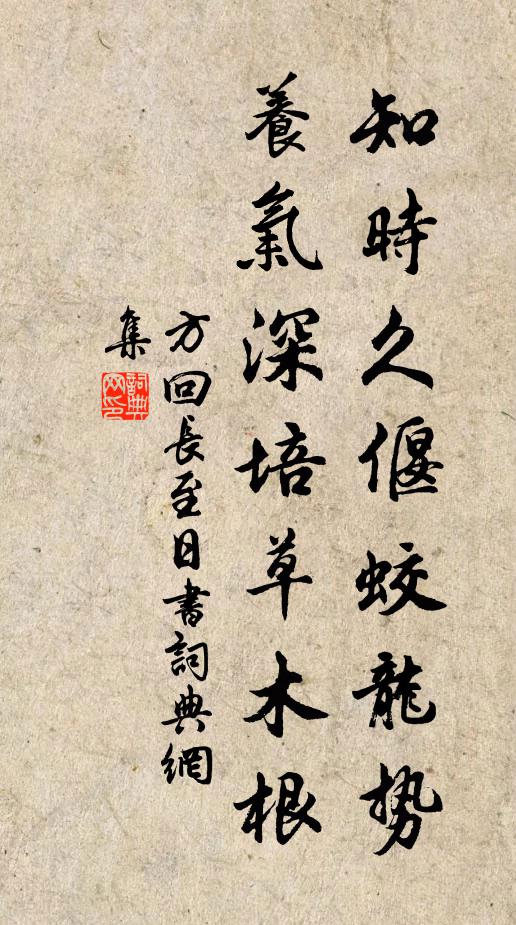 知時久偃蛟龍势
養氣深培草木根
方回長至日書詞典網
集
詞典
网印